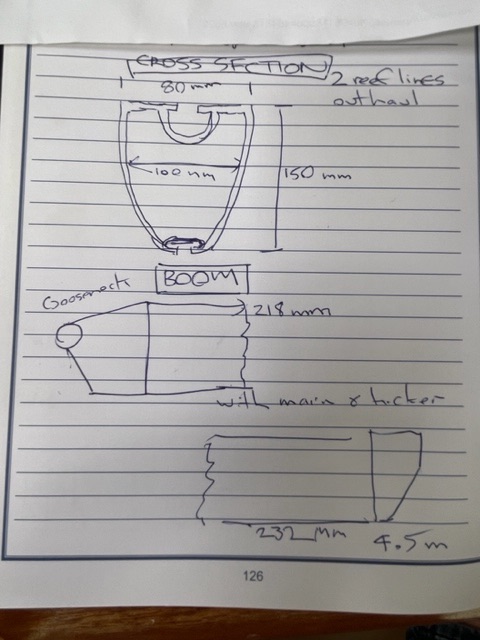 CROSS SECTION
80 mm
2 reef lines
outhaul
100 mm
150 mm
BOOM
Gooseneck
218 mm
with main & kicker
232 mm
4.5 m
126